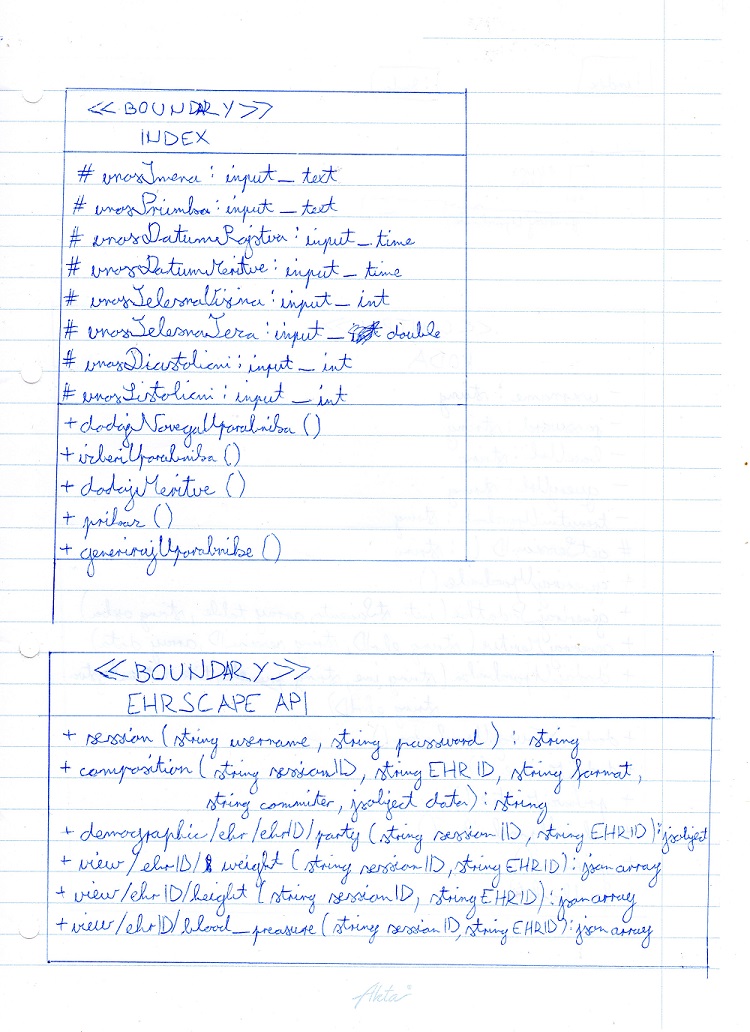 <<BOUNDARY>>
INDEX
# vnosImena : input_text
# vnosPriimka : input_text
# vnosDatumaRojstva : input_time
# vnosDatumMeritve : input_time
# vnosTelesnaVisina : input_int
# vnosTelesnaTeza : input_ double
# vnosDiastolicni : input_int
# vnosSistolicni : input_int
+ dodajNovegaUporabnika ()
+ izberiUporabnika ()
+ dodajMeritve ()
+ prikaz ()
+ generirajUporabnike ()
<<BOUNDARY>>
EHRSCAPE API
+ session (string username, string password) : string
+ composition (string sessionID, string EHRID, string format,
string commiter, jsobject data) : string
+ demographic/ehr/ehrID/party (string sessionID, string EHRID) : jsobject
+ view/ehrID/ weight (string sessionID, string EHRID) : json array
+ view/ehrID/height (string sessionID, string EHRID) : json array
+ view/ehrID/blood_preasure (string sessionID, string EHRID) : json array
Akta